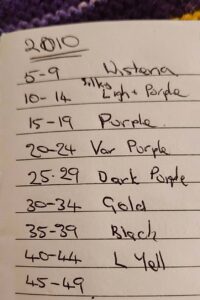 2010
5-9 Wisteria
10-14 Silky Light Purple
15-19 Purple.
20-24 Var Purple
25-29 Dark Purple
30-34 Gold
35-39 Black
40-44 L Yell
45-49